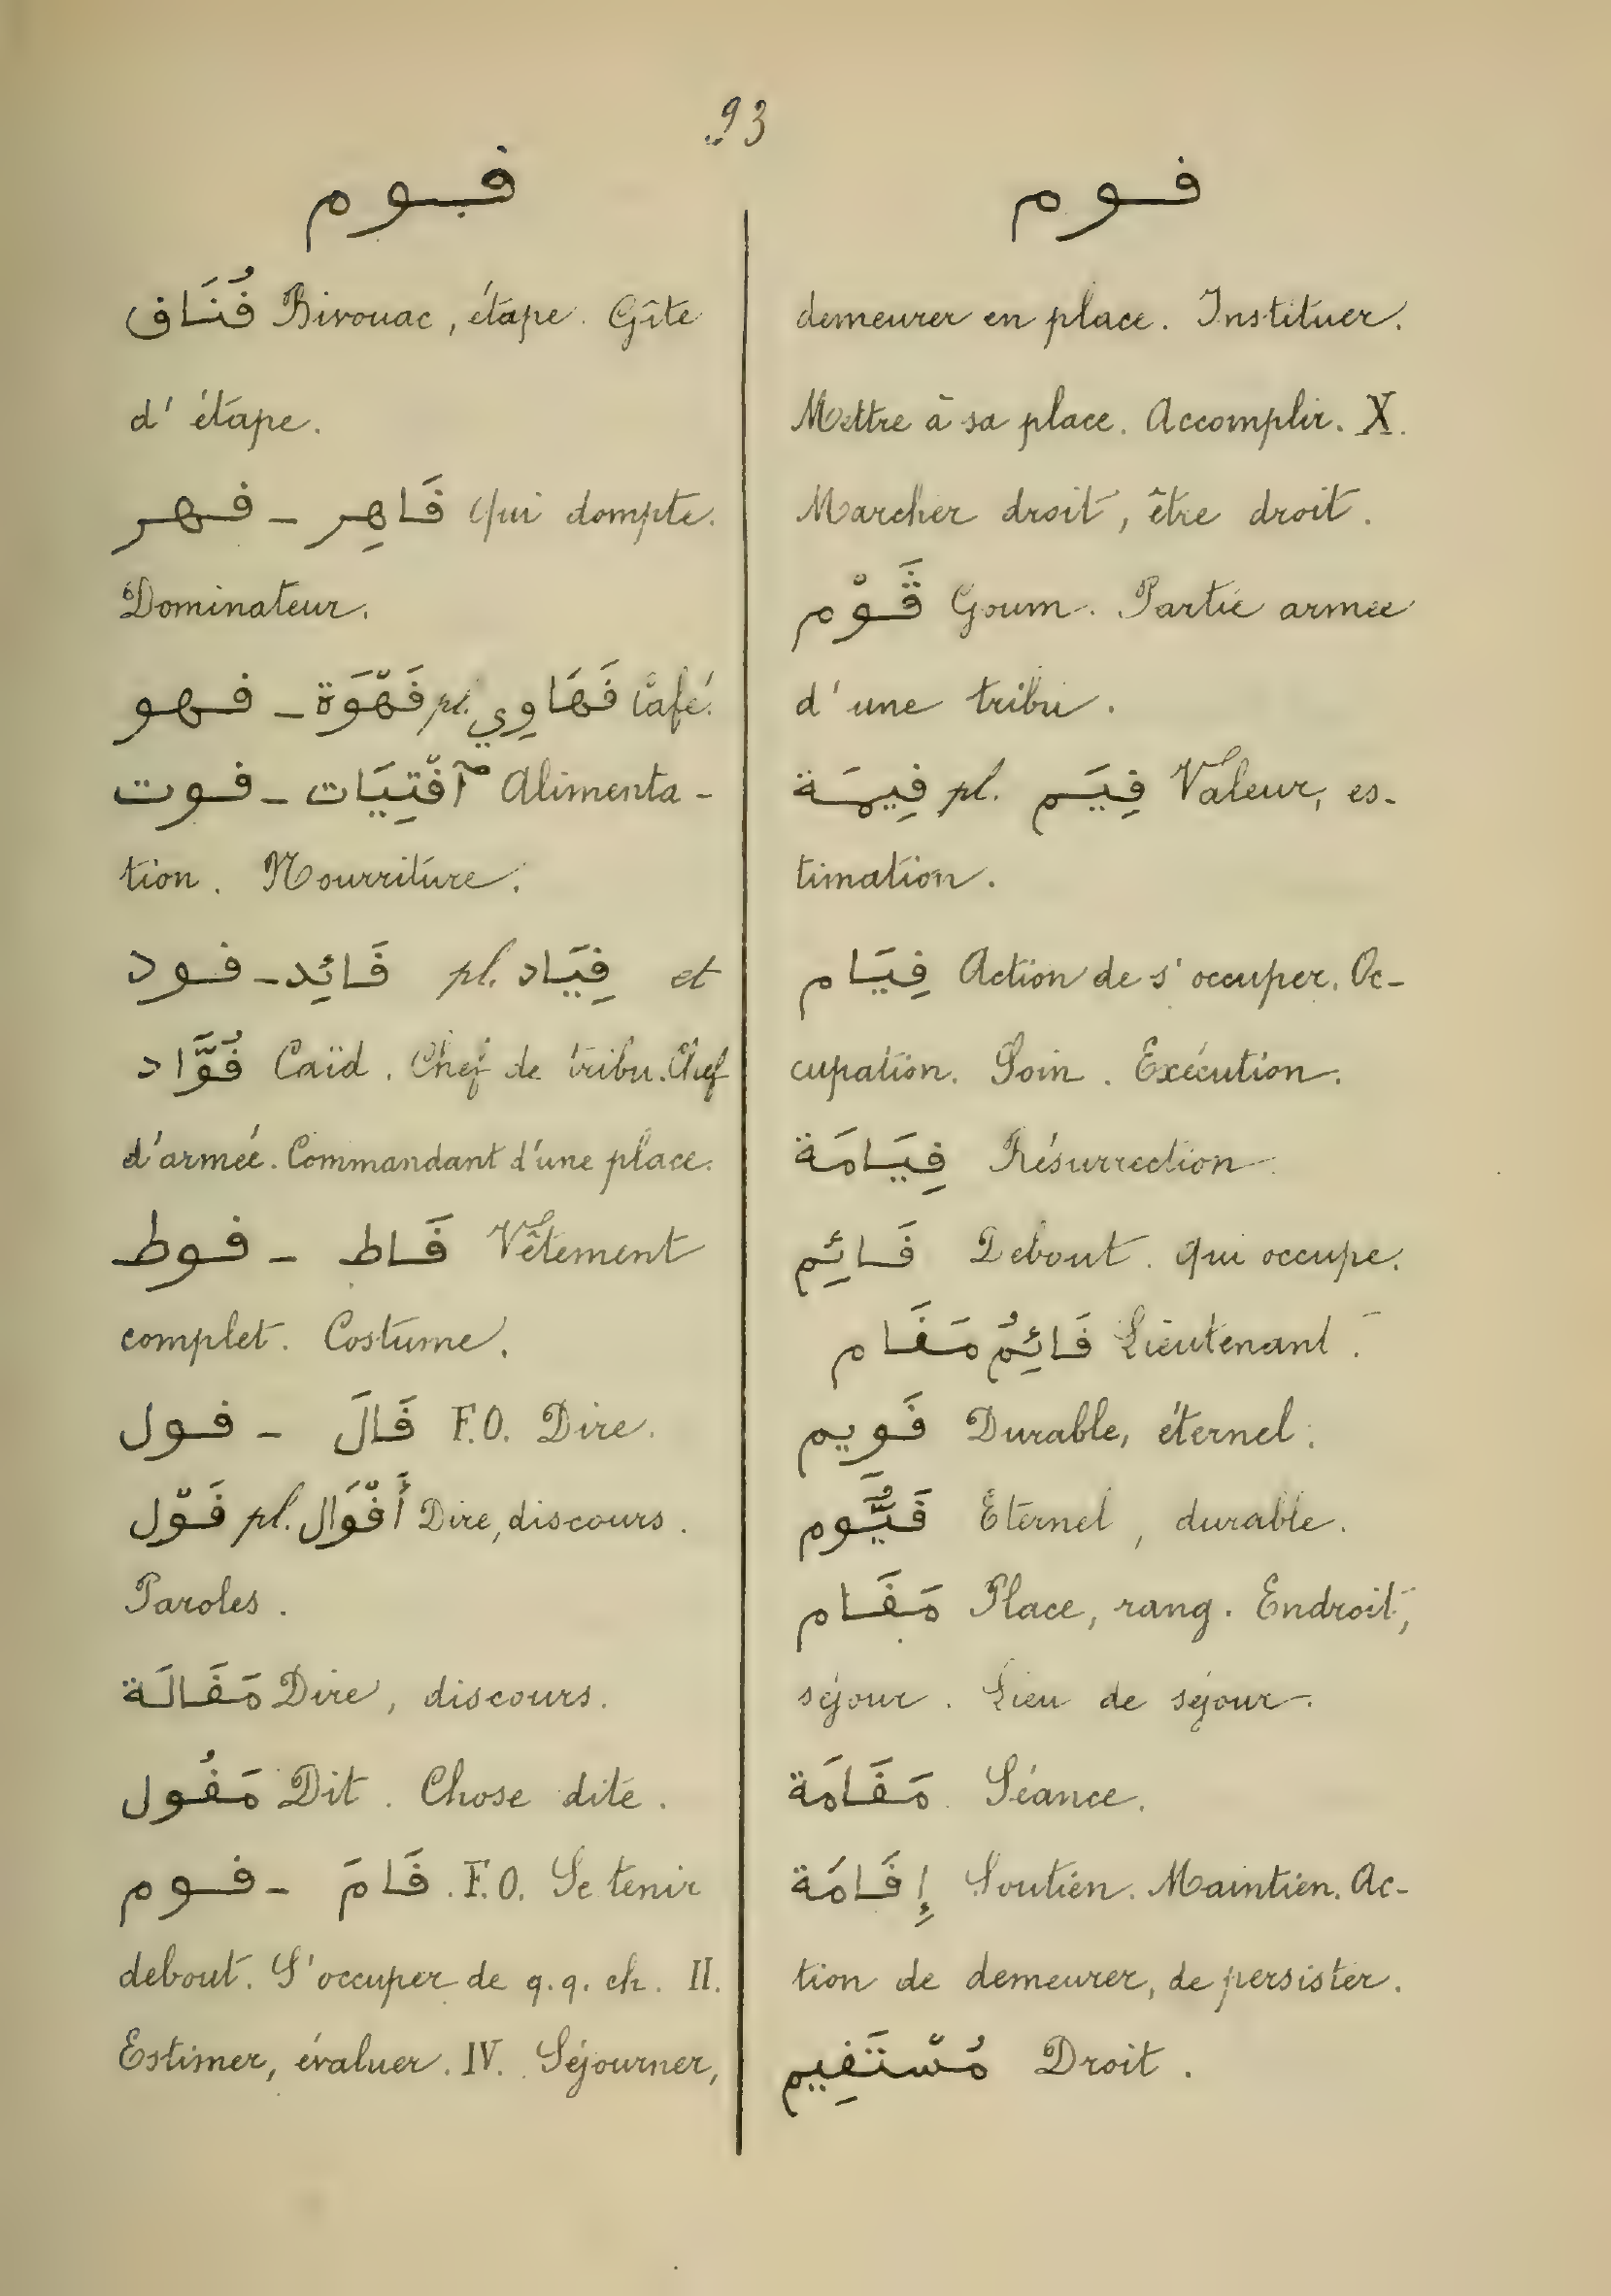 93
قوم
قُنَاق Bivouac, étape. Gîte
d'étape.
قهر - قَاهِر Qui dompte.
Dominateur.
قهو - قَهْوَة pl. قَهَاوِي Café.
قوت - آقْتِيَات Alimenta-
tion. Nourriture.
قود - قَائِد pl. قِيَاد et
قُوَّاد Caïd. Chef de tribu. Chef
d'armée. Commandant d'une place.
قوط - قَاط Vêtement
complet. Costume.
قول - قَالَ F.O. Dire.
قَوْل pl. أَقْوَال Dire, discours.
Paroles.
مَقَالَة Dire, discours.
مَقُول Dit. Chose dite.
قوم - قَامَ F.O. Se tenir
debout. S'occuper de q.q. ch. II.
Estimer, évaluer. IV. Séjourner,
قوم
demeurer en place. Instituer.
Mettre à sa place. Accomplir. X.
Marcher droit, être droit.
ڨَوْم Goum. Partie armée
d'une tribu.
قِيمَة pl. قِيَم Valeur, es-
timation.
قِيَام Action de s'occuper. Oc-
cupation. Soin. Exécution.
قِيَامَة Résurrection
قَائِم Debout. Qui occupe.
قَائِمُ مَقَام Lieutenant.
قَوِيم Durable, éternel.
قَيُّوم Éternel, durable.
مَقَام Place, rang. Endroit,
séjour. Lieu de séjour.
مَقَامَة Séance.
إِقَامَة Soutien. Maintien. Ac-
tion de demeurer, de persister.
مُسْتَقِيم Droit.